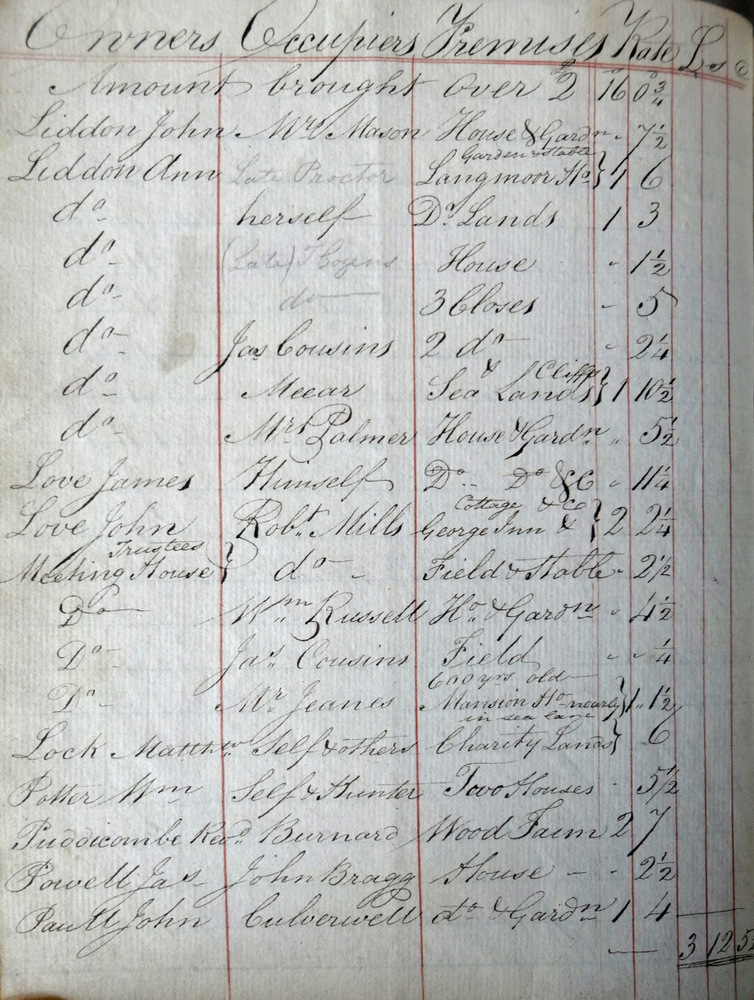 Owners Occupiers Premises Rate £ s
Amount brought over £2 16 0 3/4
Liddon John Mrs Mason House & Gardn " 7 1/2
Garden & Stable
Liddon Ann Late Proctor Langmoor Ho } 1 6
do herself Do Lands 1 3
do (Late) T Cozens House " 1 1/2
do do 3 Closes " 5
do Jas Cousins 2 do " 2 1/4
& Cliffs
do Meear Sea Lands } 1 10 1/2
do Mrs Palmer House & Gardn " 5 1/2
Love James Himself Do Do &C " 11 1/4
Cottage &c
Love John Robt Mills George Inn & } 2 2 1/4
Trustees
Meeting House } do Field & Stable " 2 1/2
Do Wm Russell Ho & Gardn " 4 1/2
Do Jas Cousins Field " " 1/4
600 yrs old
Do Mr Jeanes Mansion Ho nearly } 1 " 1 1/2
in sea lane
Lock Matthw Self & others Charity Lands } 6
Potter Wm Self & Hunter Two Houses " 5 1/2
Puddicombe Revd Burnard Wood Farm 2 7
Powell Jas John Bragg House " 2 1/2
Paull John Culverwell do & Gardn 1 4
3 12 5